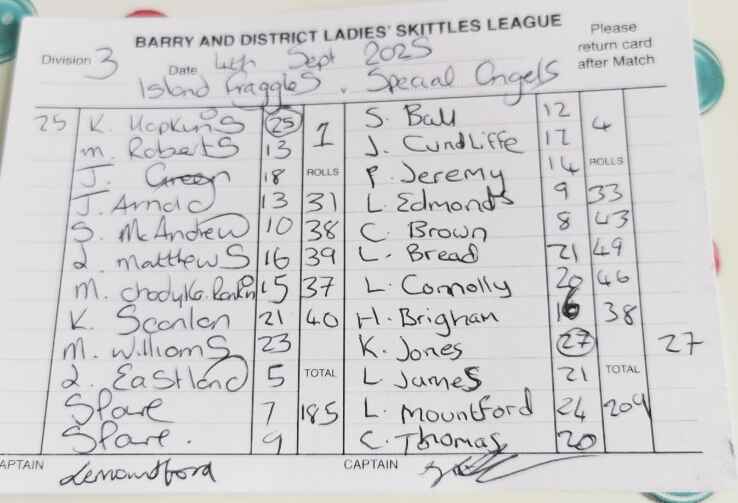 BARRY AND DISTRICT LADIES' SKITTLES LEAGUE
Please return card after Match
Division 3 Date 4th Sept 2025
Island Fraggles . Special Angels
25 K. Hopkins 25 1 S. Ball 12 4
M. Roberts 13 J. Cundliffe 12
J. Green 18 ROLLS P. Jeremy 14 ROLLS
J. Arnold 13 31 L. Edmonds 9 33
S. McAndrew 10 38 C. Brown 8 43
L. Matthews 16 39 L. Bread 21 49
M. 15 37 L. Connolly 20 46
K. Scanlan 21 40 H. Brigham 16 38
M. Williams 23 K. Jones 27 27
L. Eastland 5 TOTAL L. James 21 TOTAL
Spare 7 185 L. Mountford 24 209
Spare. 9 C. Thomas 20
CAPTAIN Lemountford CAPTAIN